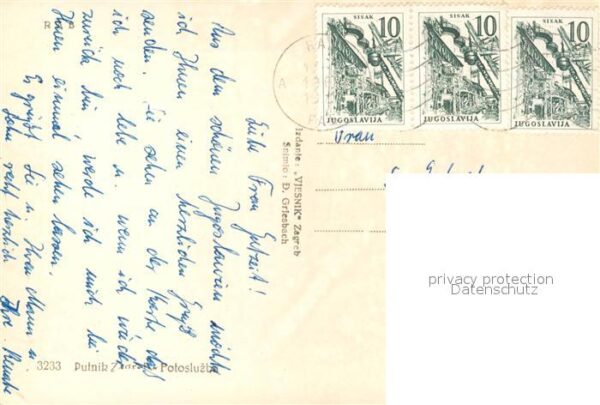 Liebe Frau Gutzeit!
Aus dem schönen Jugoslawien möchte
ich Ihnen einen herzlichen Gruß
senden. Sie sehen an der Karte daß
ich noch lebe u. wenn ich wieder
zurück bin werde ich mich bei
Ihnen einmal sehen lassen.
Es grüßt Sie u. Ihren Mann
sehr recht herzlich Ihre
SISAK 10
JUGOSLAVIJA
SISAK 10
JUGOSLAVIJA
SISAK 10
JUGOSLAVIJA
Frau
Izdanje: „VJESNIK" Zagreb
Snimio: Đ. Griesbach
privacy protection
Datenschutz
3233 Putnik Fotoslužba